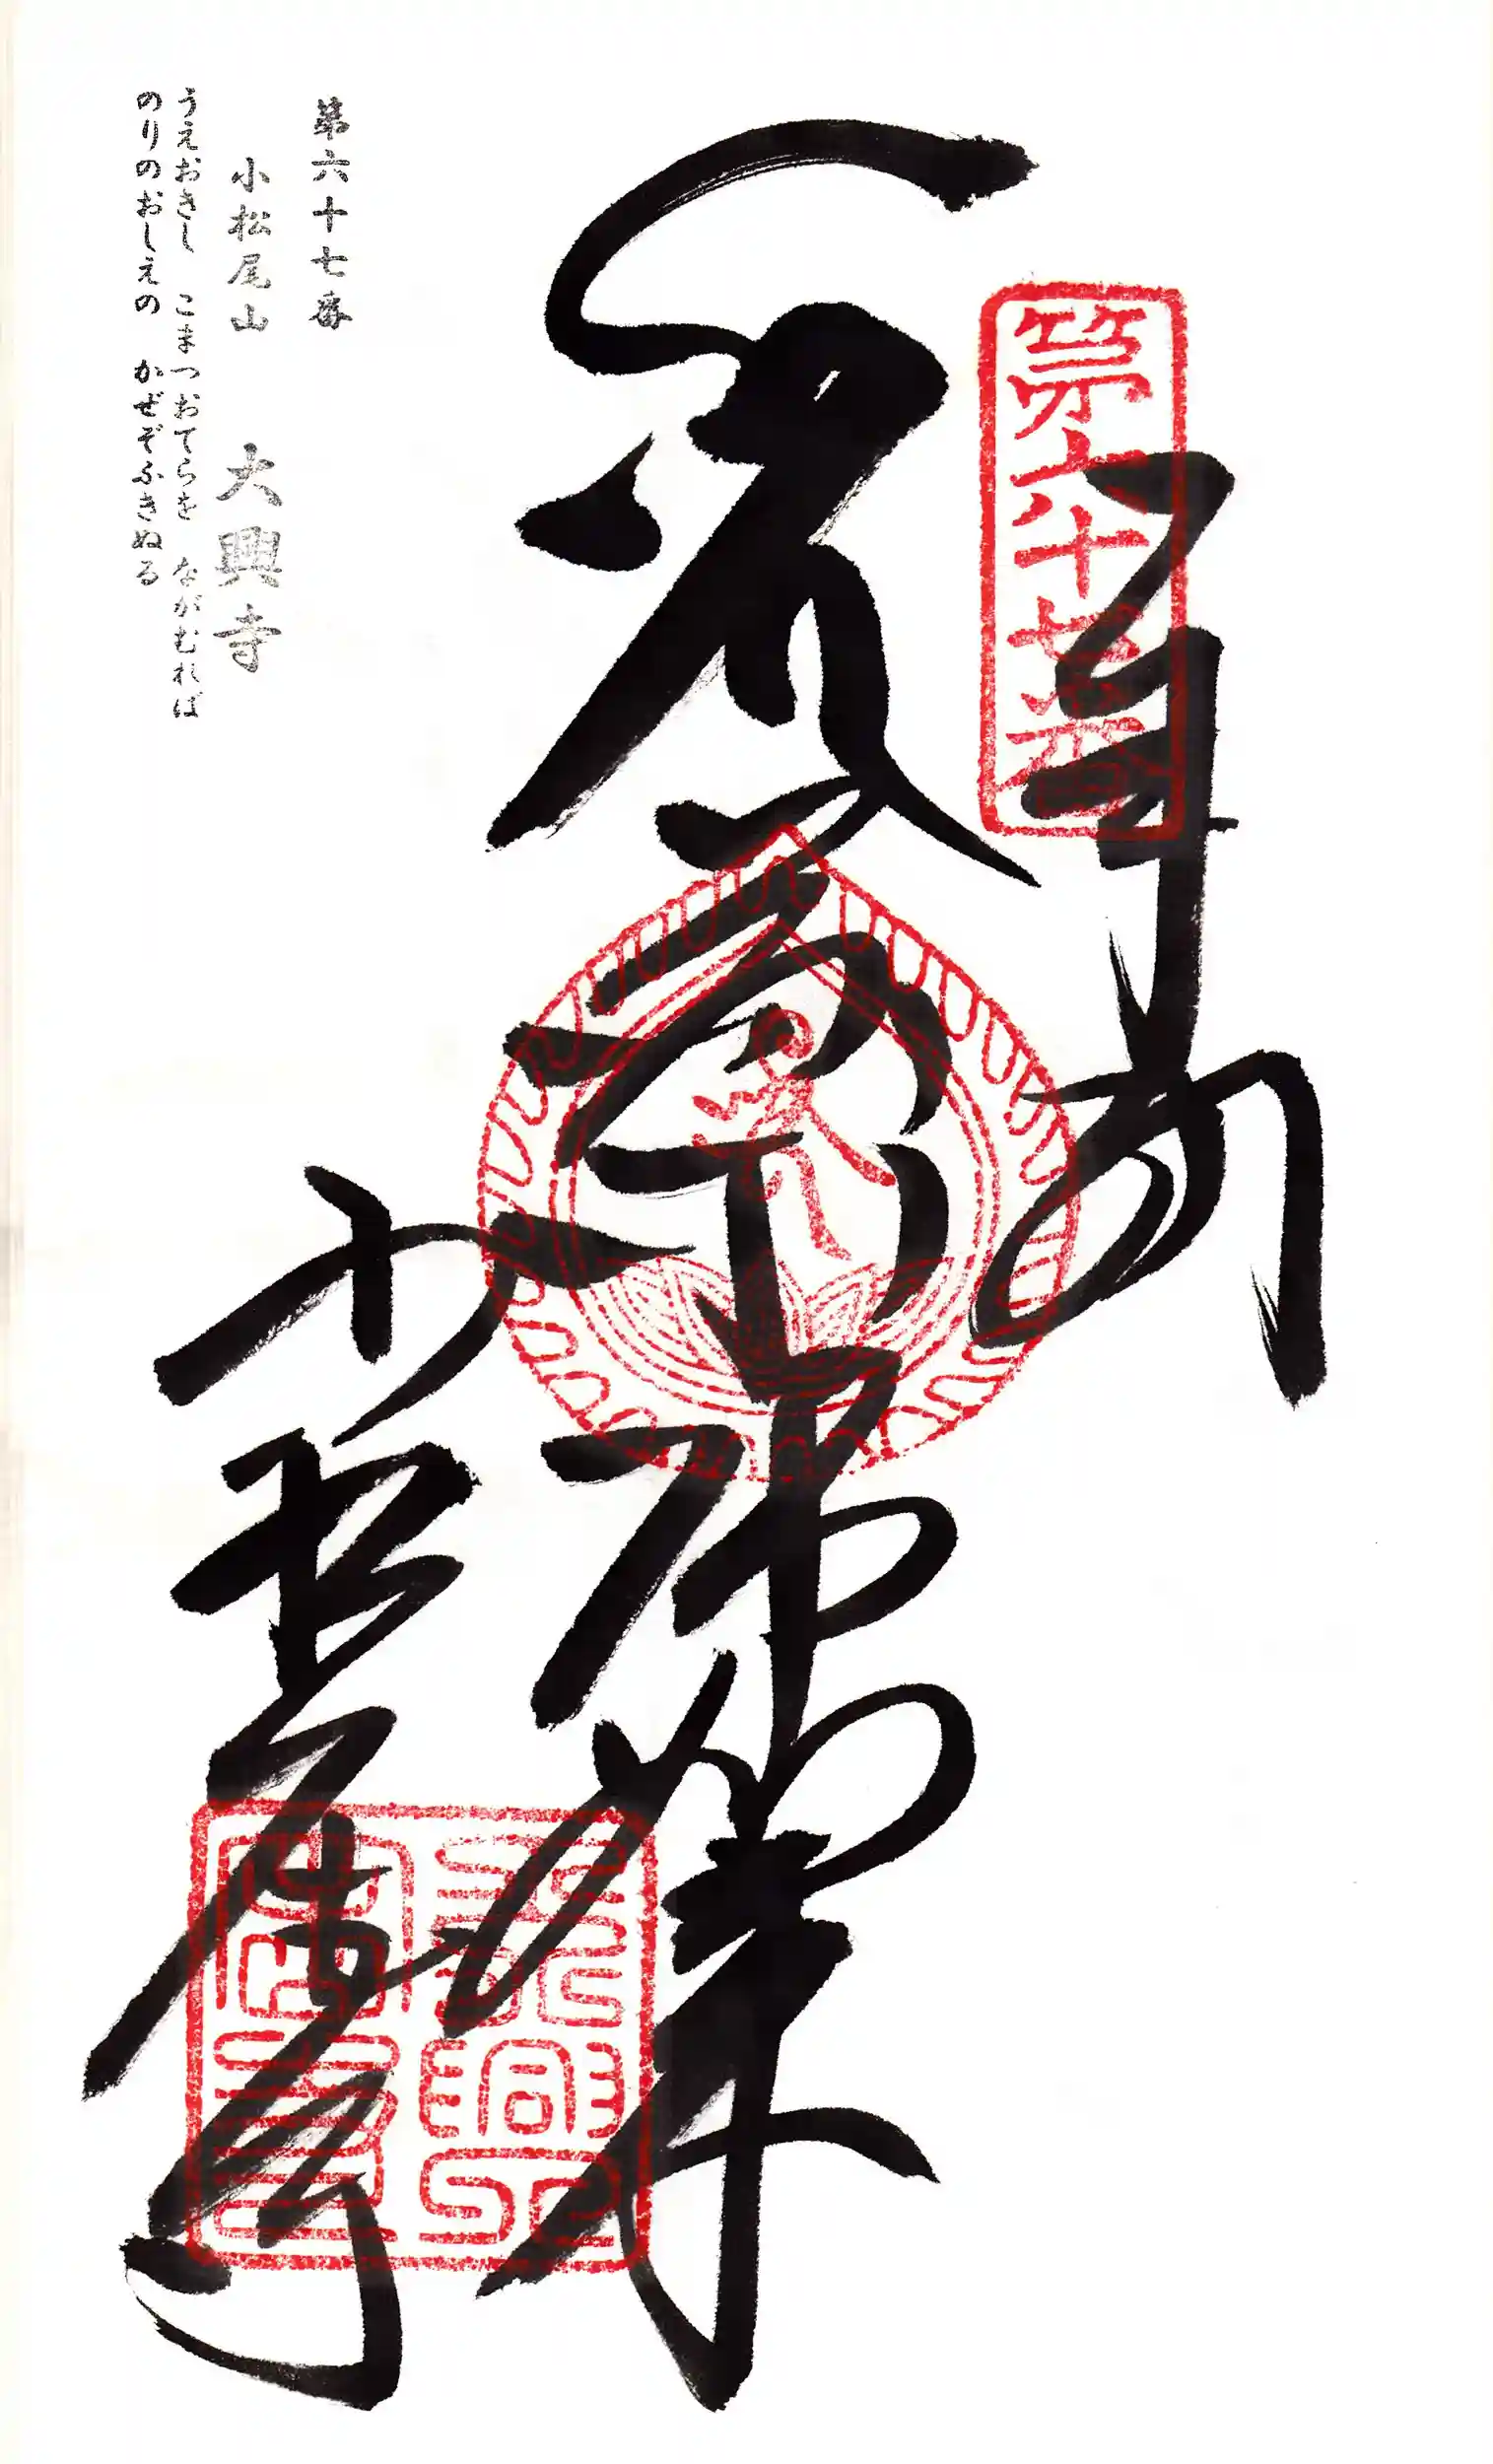 第六十七番
奉納
薬師如来
小松尾寺
第六十七番
小松尾山 大興寺
うえおきし こまつおてらを ながむれば
のりのおしえの かぜぞふきぬる